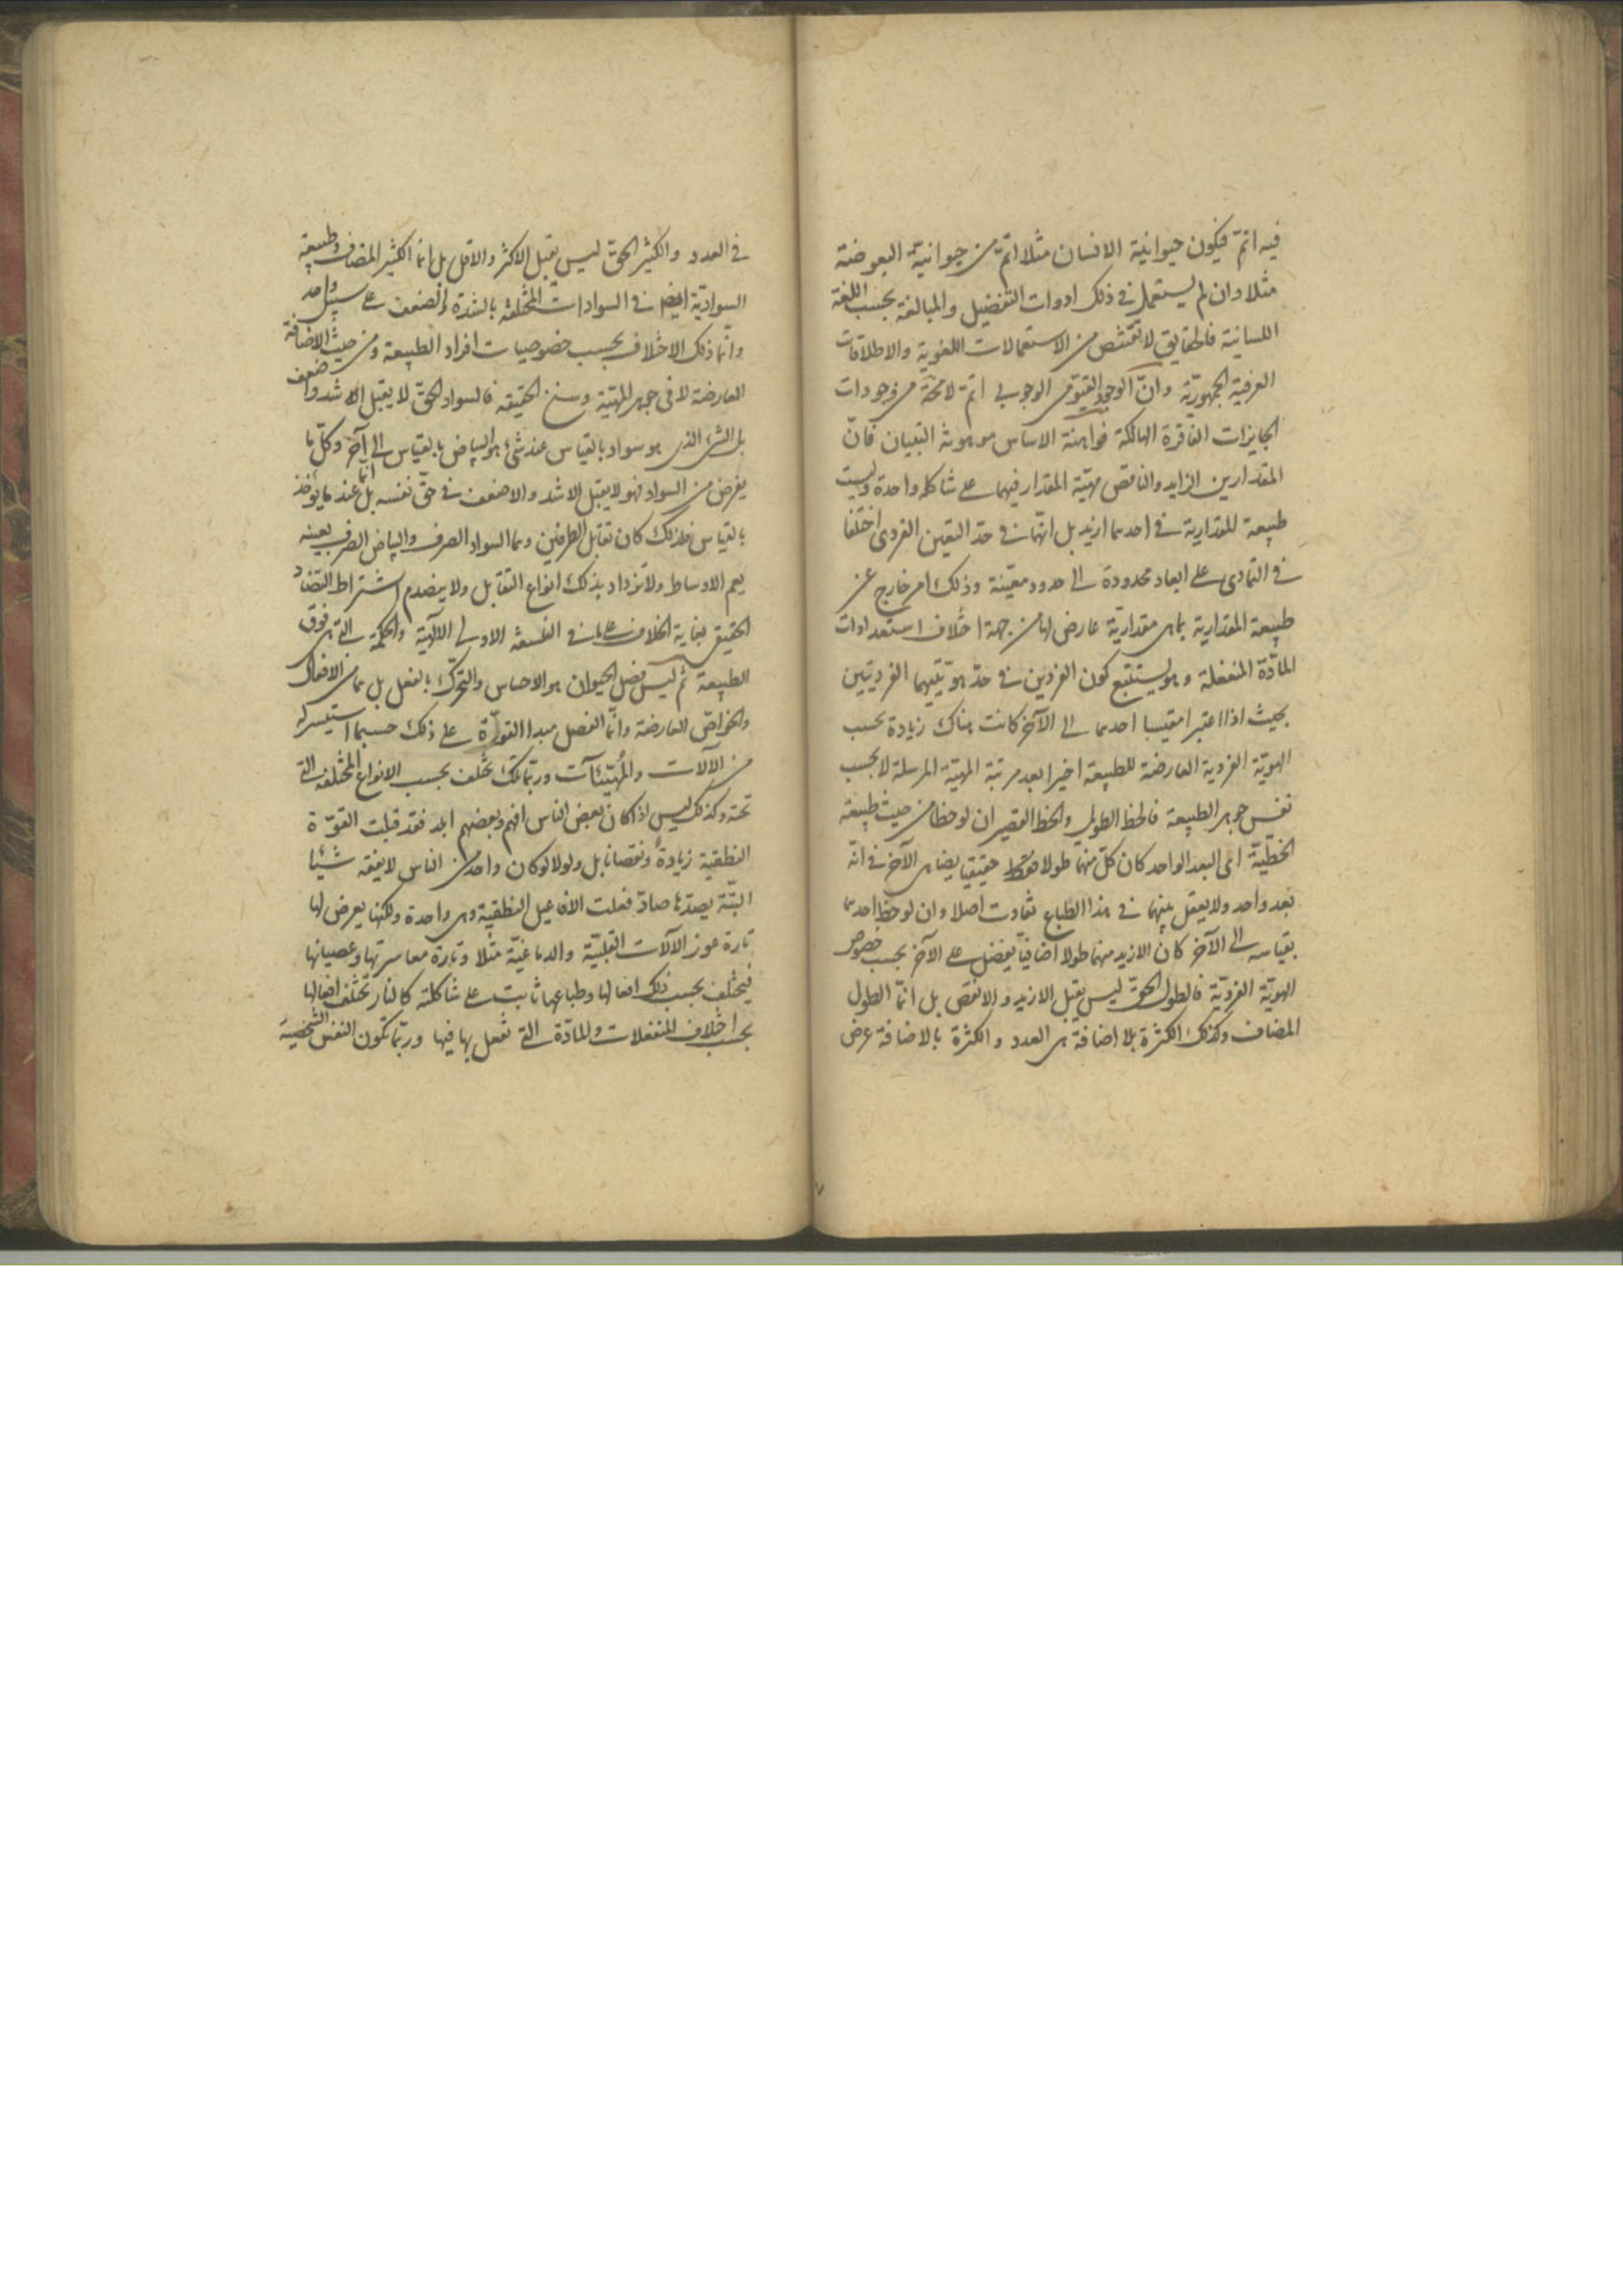 فيه اتمّ فيكون حيوانية الانسان مثلا اتمّ من حيوانيّة البعوضة
مثلا وان لم يستعمل في ذلك ادوات التفضيل والمبالغة بحسب اللغة
اللسانية فالحقايق لا تقتنص من الاستعمالات اللغوية والاطلاقات
العرفية الجمهوريّة وانّ الوجود القيّومي الوجوبي اتمّ لا محة من وجودات
الجايزات الفاقرة الهالكة فواهنة الاساس موهونة التبيان فانّ
المقدارين الزايد والناقص مهيّة المقدار فيهما على شاكلة واحدة وليست
طبيعة المقدارية في احدهما ازيد بل انّهما في حدّ التعين الفردي اختلفا
في التمادي على ابعاد محدودة الى حدود معيّنة وذلك امر خارج عن
طبيعة المقدارية بما هي مقداريّة عارض لها من جهة اختلاف استعدادات
المادّة المنفعلة وهو يستتبع كون الفردين في حدّ هويّتيهما الفرديتين
بحيث اذا اعتبر مقيسا احدهما الى الآخر كانت هناك زيادة بحسب
الهويّة الفردية العارضة للطبيعة اخيرا بعد مرتبة المهيّة المرسلة لا بحسب
نفس جوهر الطبيعة فالخط الطويل والخط القصير ان لوحظا من حيث طبيعة
الخطّيّة اى البعد الواحد كان كلّ منهما طولا حقيقيا يضاهى الآخر في انّه
بعد واحد ولا يعقل بينهما في هذا الطباع تفاوت اصلا وان لوحظ احدهما
بقياسه الى الآخر كان الازيد منهما طولا اضافيّا يفضل على الآخر بحسب خصوص
الهويّة الفرديّة فالطول الحقّ ليس يقبل الازيد والانقص بل انّما الطول
المضاف وكذلك الكثرة بلا اضافة هى العدد والكثرة بالاضافة عرض
في العدد والكثير الحقّ ليس يقبل الاكثر والاقل بل انما الكثير المضاف وطبيعة
السواديّة ايضا في السوادات المختلفة بالشدة والضعف على سبيل واحد
وانّما ذلك الاختلاف بحسب خصوصيات افراد الطبيعة ومن حيث الاضافة
العارضة لا في جوهر المهيّة وسنخ الحقيقه فالسواد الحقّ لا يقبل الاشد والاضعف
بل الشئ الذى هو سواد بالقياس عند شئ هو البياض بالقياس الى آخر وكلّ ما
يفرض من السواد فهو لا يقبل الاشد والاضعف في حقّ نفسه بل انّما عند ما يؤخذ
بالقياس فلذلك كان تقابل الطرفين وهما السواد الصرف والبياض الصرف بعينه
يعم الاوساط ولا تزداد بذلك انواع التقابل ولا ينضدم اشتراط التضادّ
الحقيقى بغاية الخلاف على ما في الفلسفة الاولى الالٓهيّة والحكمة التى هى فوق
الطبيعة ثم ليس فصل الحيوان هو الاحساس والتحرّك بالفعل بل هما من الافعال
والخواصّ العارضة وانّما الفصل مبدا القوّة على ذلك حسبما استيسر له
من الآلات والمُهيّئآت وربّما تلك تختلف بحسب الانواع المختلفة التى
تحته وكذلك ليس اذا كان بعض الناس افهم وبعضهم ابلد فقد قبلت القوّة
النطقية زيادةً ونقصانا بل ولا لو كان واحد من الناس لا يفقه شيئا
البتّة يصدّها صادّ فعلت الافاعيل النطقية وهى واحدة ولكنها يعرض لها
تارة عوز الآلات القلبيّة والدماغيّة مثلا وتارة معاسرتها وعصيانها
فيختلف بحسب ذلك افعالها وطباعها ثابت على شاكلته كالنار تختلف افعالها
بحسب اختلاف المنفعلات والمادّة التى تفعل بها فيها وربّما تكون النفس الشخصية